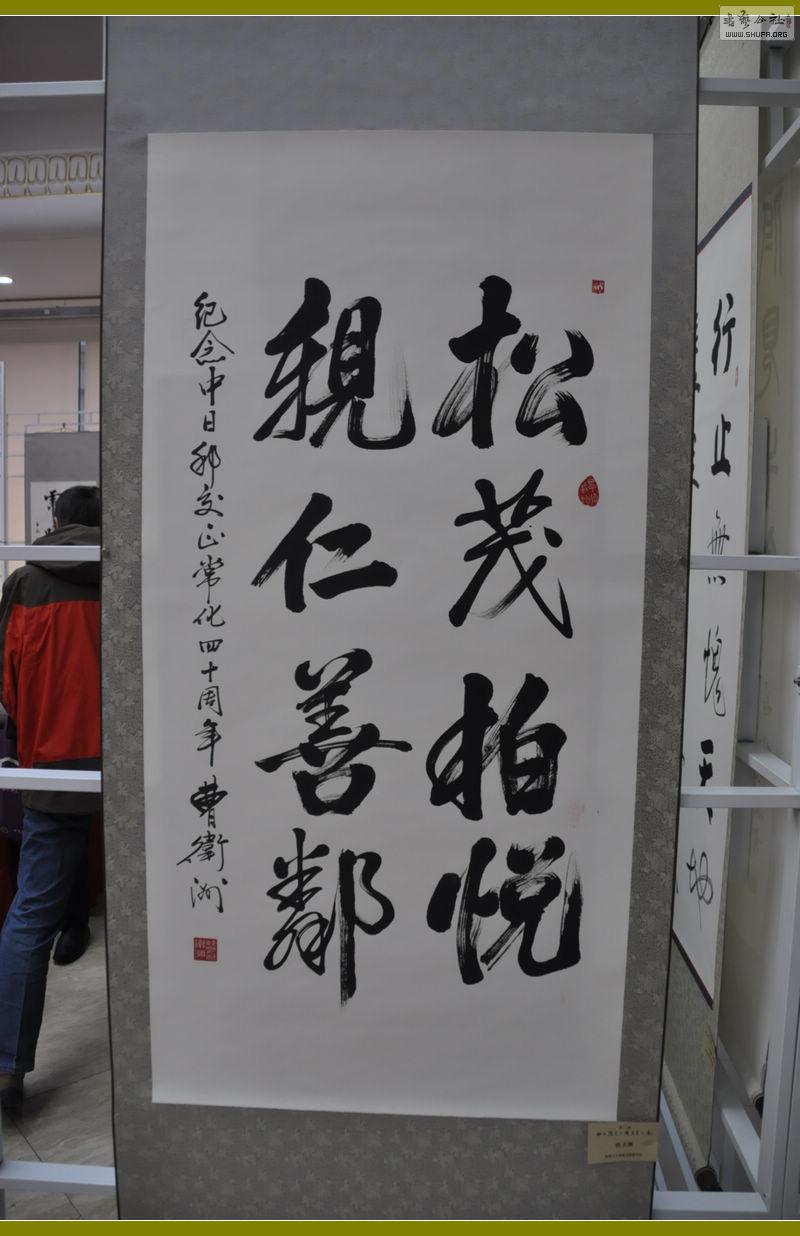 松茂柏悦
親仁善鄰
纪念中日邦交正常化四十周年 曹衛洲
行止無愧天地
書藝公社
WWW.SHUFA.ORG